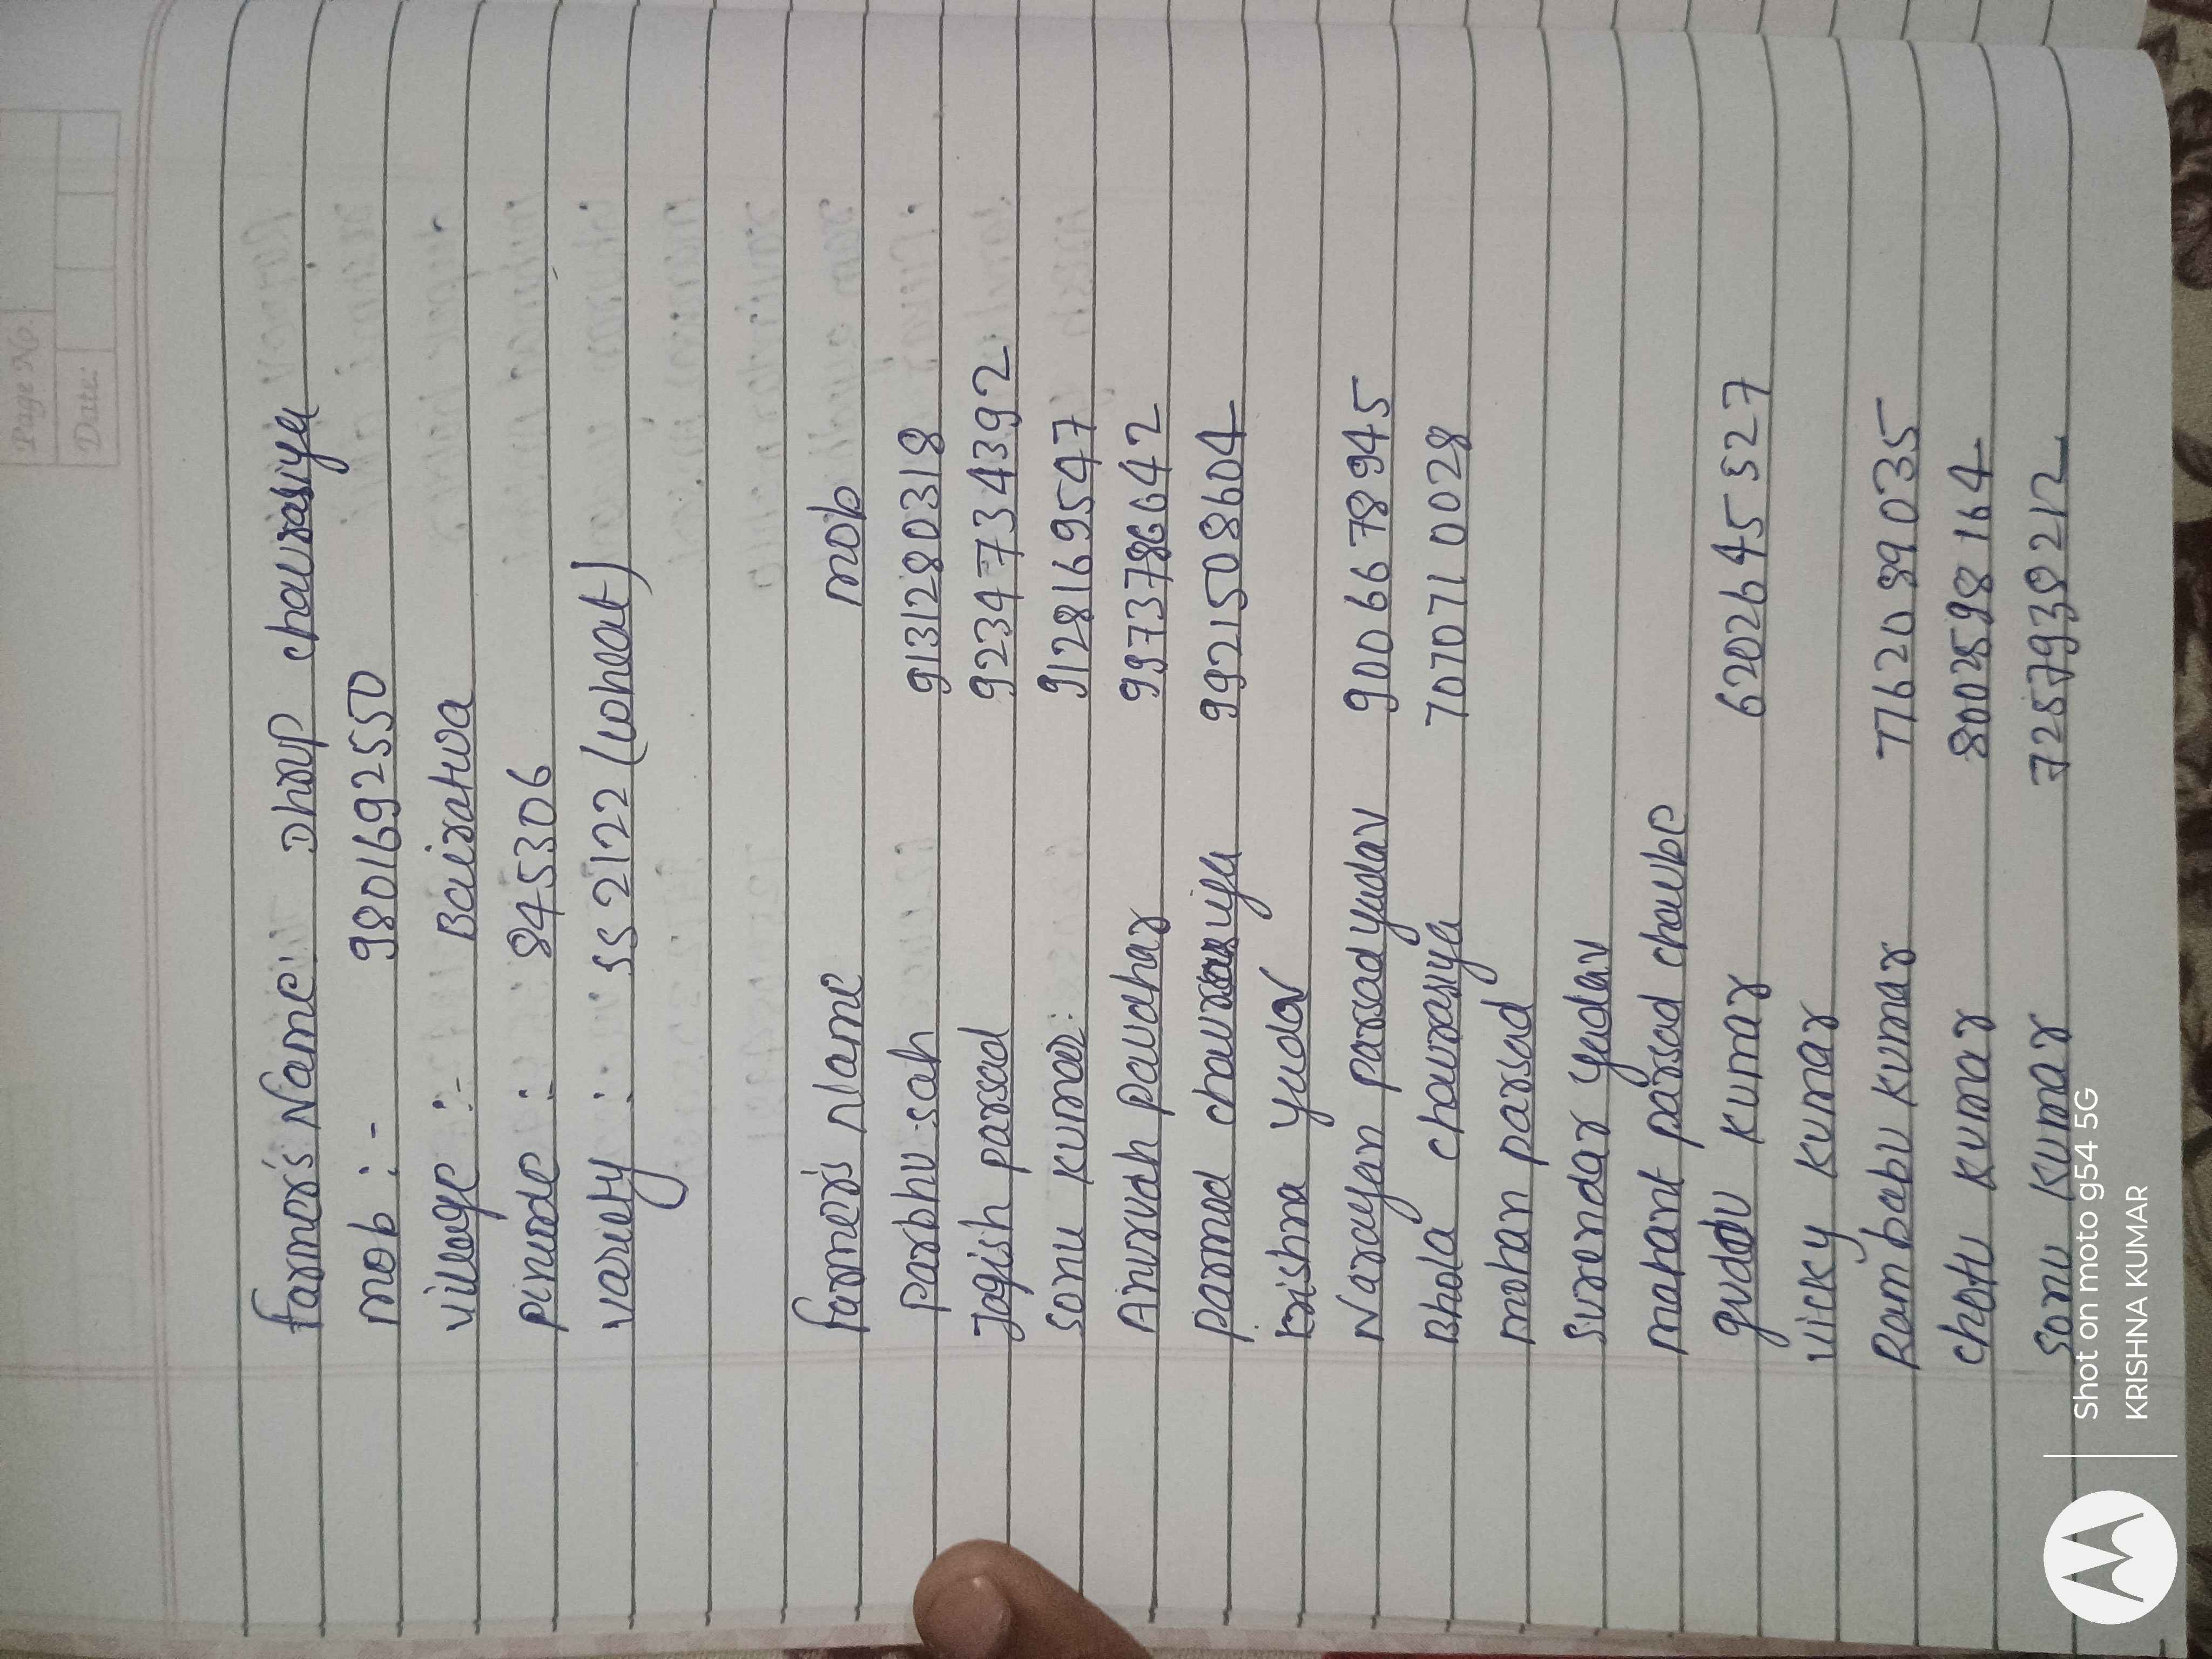 Page No.
Date:
farmer's Name:  Dhrup chaurasiya
mob :-  9801692550
village :-  Bairatwa
pincode :  845306
variety :  SS 2122 (wheat)
farmer's Name  mob
Parbhu sah  9131280318
Jagish parsad  9234734392
sonu kumar  9128169547
Anurudh paudhar  9973786642
parmod chaurasiya  9921508604
krishna yudav
Narayan parsad yudav  9006678945
Bhola chaurasiya  7070710028
mohan parsad
surendar yadav
mahant parsad chaube
guddu kumar  6202645327
vicky kumar
Rambabu kumar  7762089035
chotu kumar  8002598164
sonu kumar  7257938212
Shot on moto g54 5G
KRISHNA KUMAR